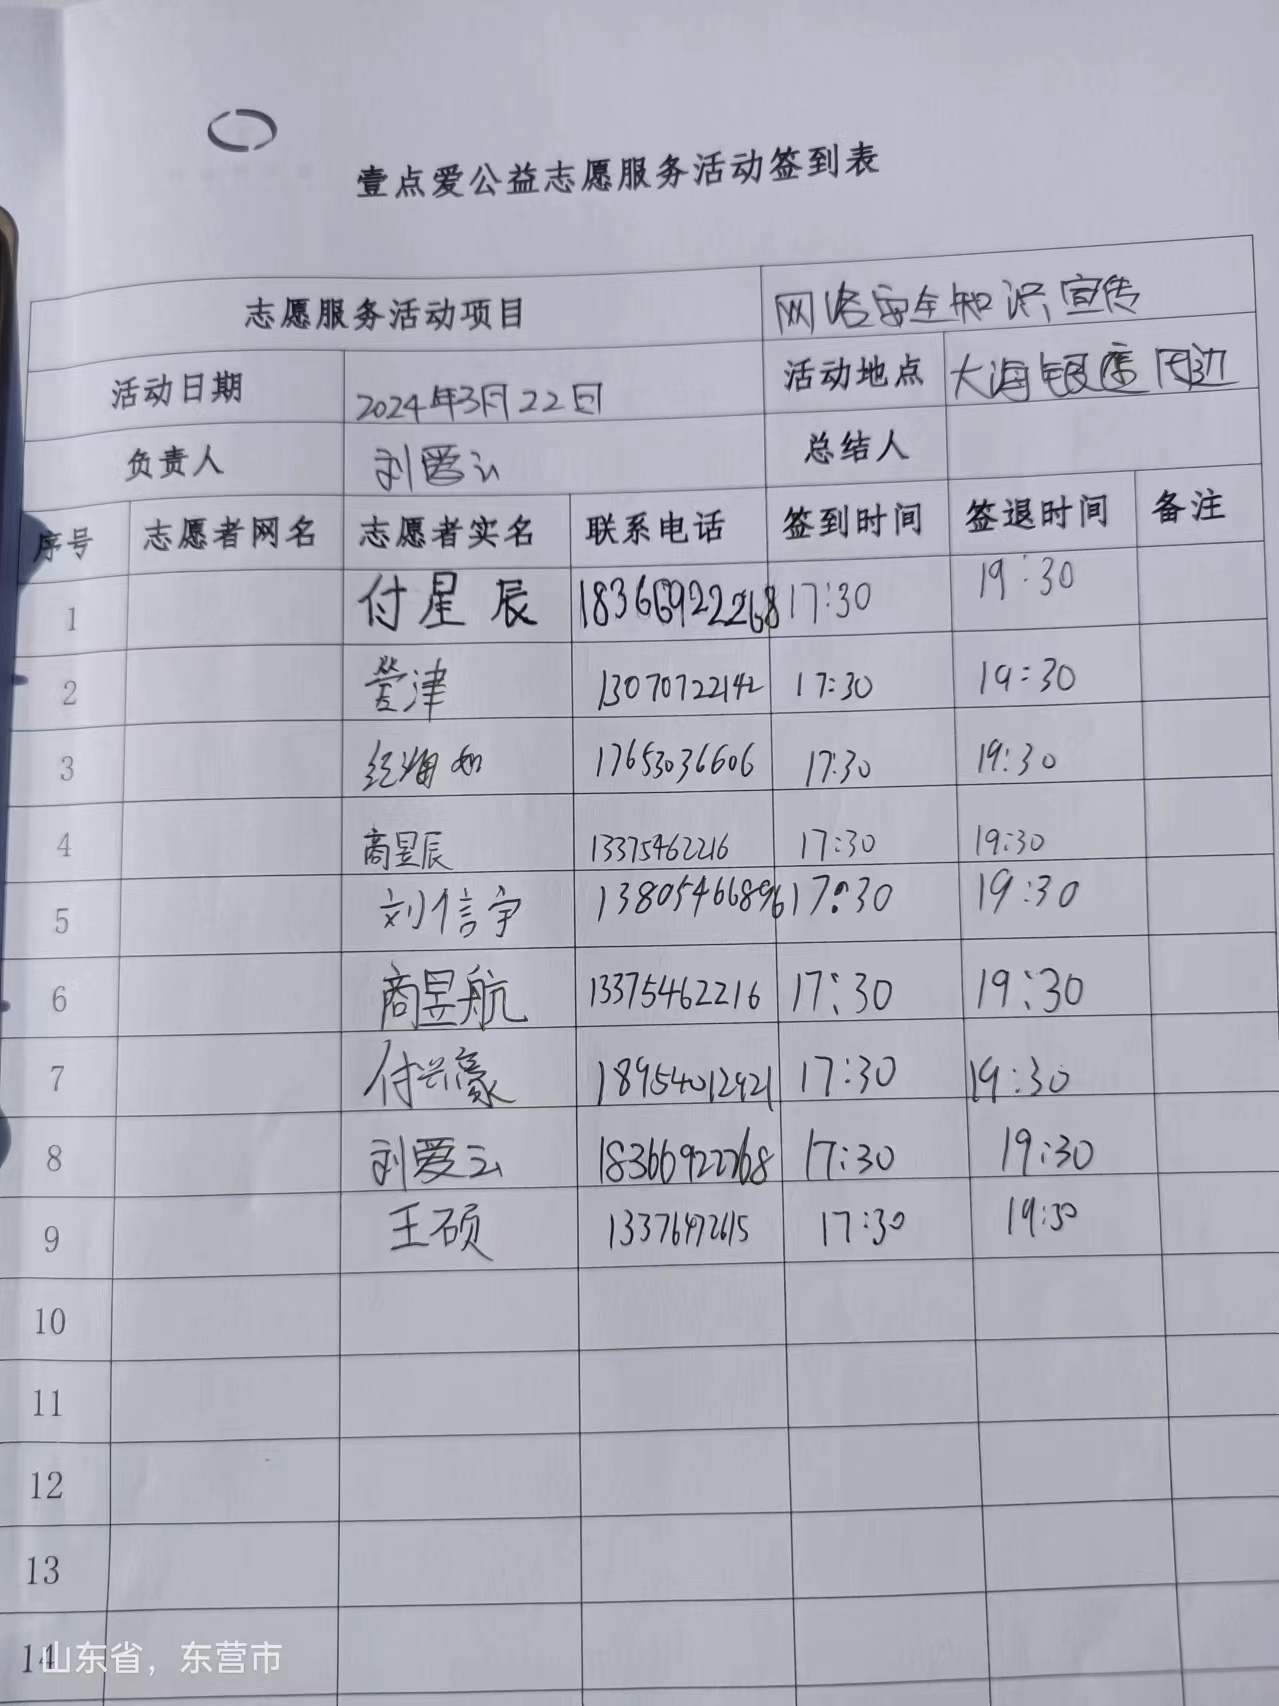 壹点爱公益志愿服务活动签到表
志愿服务活动项目 网络安全知识宣传
活动日期 2024年3月22日 活动地点 大海银座周边
负责人 刘爱云 总结人
序号 志愿者网名 志愿者实名 联系电话 签到时间 签退时间 备注
1 付星辰 18366922268 17:30 19:30
2 津 13070722142 17:30 19:30
3 17653036606 17:30 19:30
4 商昱辰 13375462216 17:30 19:30
5 刘信宇 13805466896 17:30 19:30
6 商昱航 13375462216 17:30 19:30
7 付兴豪 18954012921 17:30 19:30
8 刘爱云 18366922268 17:30 19:30
9 王硕 17:30 19:30
10
11
12
13
14
山东省，东营市